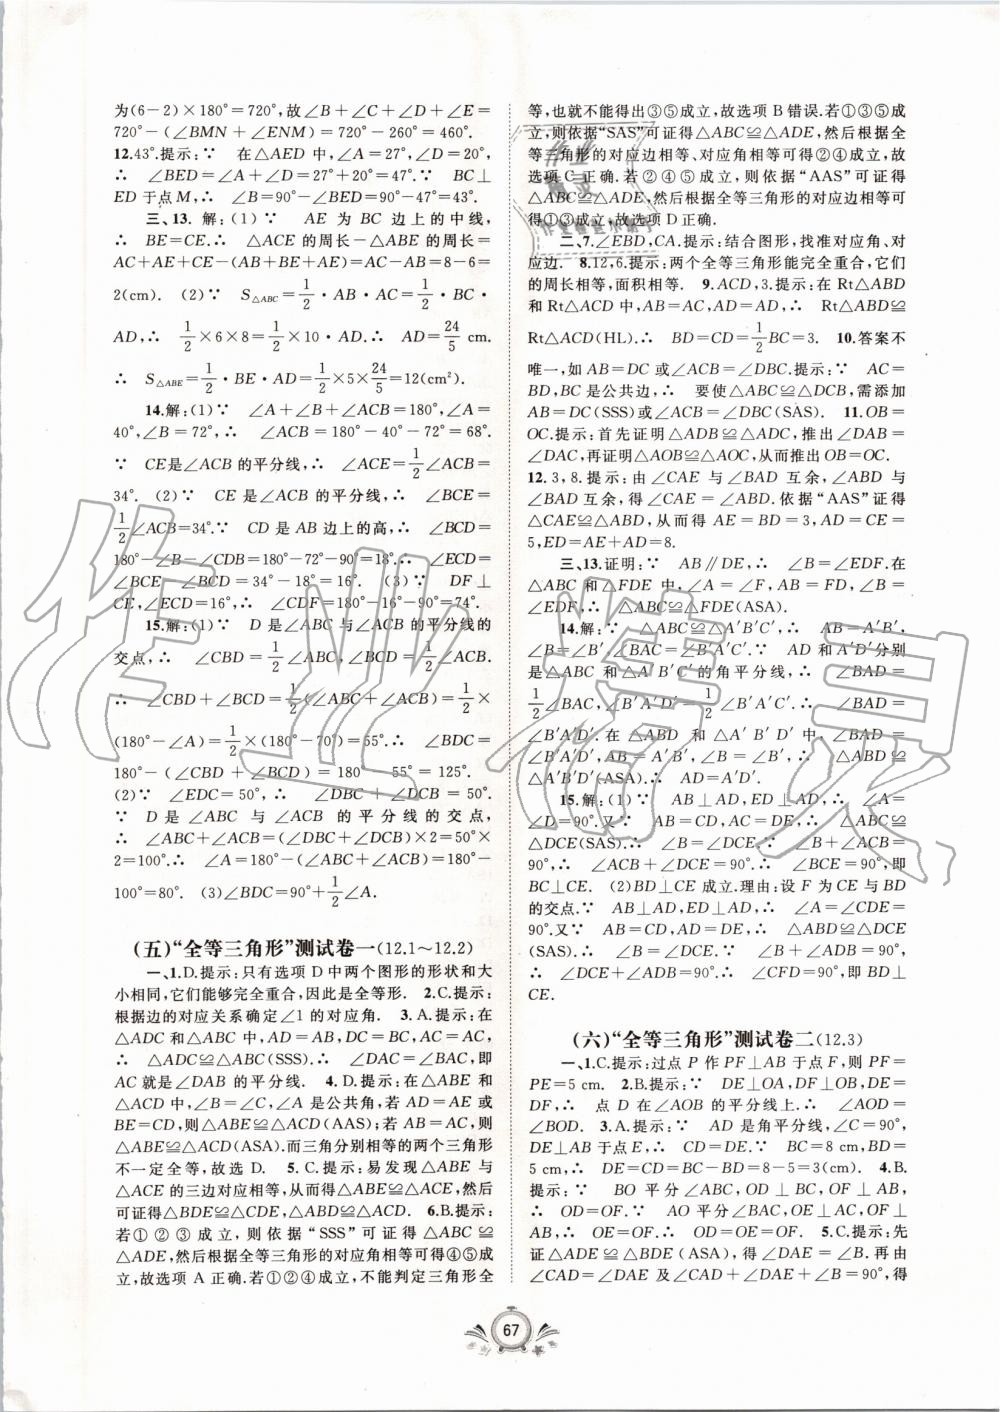 为(6-2)×180°=720°,故∠B+∠C+∠D+∠E=
720°-(∠BMN+∠ENM)=720°-260°=460°.
12.43°.提示:∵ 在△AED中,∠A=27°,∠D=20°,
∴ ∠BED=∠A+∠D=27°+20°=47°.∵ BC⊥
ED于点M,∴ ∠B=90°-∠BED=90°-47°=43°.
三、13. 解:(1)∵ AE 为 BC 边上的中线,
∴ BE=CE.∴ △ACE的周长-△ABE的周长=
AC+AE+CE-(AB+BE+AE)=AC-AB=8-6=
2(cm). (2)∵ S△ABC=1/2·AB·AC=1/2·BC·
AD,∴ 1/2×6×8=1/2×10·AD.∴ AD=24/5 cm.
∴ S△ABE=1/2·BE·AD=1/2×5×24/5=12(cm²).
14.解:(1)∵ ∠A+∠B+∠ACB=180°,∠A=
40°,∠B=72°,∴ ∠ACB=180°-40°-72°=68°.
∵ CE是∠ACB的平分线,∴ ∠ACE=1/2∠ACB=
34°. (2)∵ CE是∠ACB的平分线,∴ ∠BCE=
1/2∠ACB=34°.∵ CD是AB边上的高,∴ ∠BCD=
180°-∠B-∠CDB=180°-72°-90°=18°.∴ ∠ECD=
∠BCE-∠BCD=34°-18°=16°. (3)∵ DF⊥
CE,∠ECD=16°,∴ ∠CDF=180°-90°-16°=74°.
15.解:(1)∵ D是∠ABC与∠ACB的平分线的
交点,∴ ∠CBD=1/2∠ABC,∠BCD=1/2∠ACB.
∴ ∠CBD+∠BCD=1/2(∠ABC+∠ACB)=1/2×
(180°-∠A)=1/2×(180°-70°)=55°.∴ ∠BDC=
180°-(∠CBD+∠BCD)=180°-55°=125°.
(2)∵ ∠EDC=50°,∴ ∠DBC+∠DCB=50°.
∵ D是∠ABC与∠ACB的平分线的交点,
∴ ∠ABC+∠ACB=(∠DBC+∠DCB)×2=50°×
2=100°.∴ ∠A=180°-(∠ABC+∠ACB)=180°-
100°=80°. (3)∠BDC=90°+1/2∠A.
(五)“全等三角形”测试卷一(12.1~12.2)
一、1.D.提示:只有选项D中两个图形的形状和大
小相同,它们能够完全重合,因此是全等形. 2.C.提示:
根据边的对应关系确定∠1的对应角. 3.A.提示:在
△ADC和△ABC中,AD=AB,DC=BC,AC=AC,
∴ △ADC≌△ABC(SSS).∴ ∠DAC=∠BAC,即
AC就是∠DAB的平分线. 4.D.提示:在△ABE和
△ACD中,∠B=∠C,∠A是公共角,若AD=AE或
BE=CD,则△ABE≌△ACD(AAS);若AB=AC,则
△ABE≌△ACD(ASA).而三角分别相等的两个三角形
不一定全等,故选D. 5.C.提示:易发现△ABE与
△ACE的三边对应相等,从而得△ABE≌△ACE,然后
可证得△BDE≌△CDE,△ABD≌△ACD. 6.B.提示:
若①②③成立,则依据“SSS”可证得△ABC≌
△ADE,然后根据全等三角形的对应角相等可得④⑤成
立,故选项A正确.若①②④成立,不能判定三角形全
等,也就不能得出③⑤成立,故选项B错误.若①③⑤成
立,则依据“SAS”可证得△ABC≌△ADE,然后根据全
等三角形的对应边相等、对应角相等可得②④成立,故
选项C正确.若②④⑤成立,则依据“AAS”可证得
△ABC≌△ADE,然后根据全等三角形的对应边相等可
得①③成立,故选项D正确.
二、7.∠EBD,CA.提示:结合图形,找准对应角、对
应边. 8.12,6.提示:两个全等三角形能完全重合,它们
的周长相等,面积相等. 9.ACD,3.提示:在Rt△ABD
和Rt△ACD中,AB=AC,AD=AD,∴ Rt△ABD≌
Rt△ACD(HL).∴ BD=CD=1/2BC=3. 10.答案不
唯一,如AB=DC或∠ACB=∠DBC.提示:∵ AC=
BD,BC是公共边,∴ 要使△ABC≌△DCB,需添加
AB=DC(SSS)或∠ACB=∠DBC(SAS). 11.OB=
OC.提示:首先证明△ADB≌△ADC,推出∠DAB=
∠DAC,再证明△AOB≌△AOC,从而推出OB=OC.
12.3,8.提示:由∠CAE与∠BAD互余,∠ABD与
∠BAD互余,得∠CAE=∠ABD.依据“AAS”证得
△CAE≌△ABD,从而得AE=BD=3,AD=CE=
5,ED=AE+AD=8.
三、13.证明:∵ AB∥DE,∴ ∠B=∠EDF.在
△ABC和△FDE中,∠A=∠F,AB=FD,∠B=
∠EDF,∴ △ABC≌△FDE(ASA).
14.解:∵ △ABC≌△A′B′C′,∴ AB=A′B′,
∠B=∠B′,∠BAC=∠B′A′C′.∵ AD和A′D′分别
是△ABC和△A′B′C′的角平分线,∴ ∠BAD=
1/2∠BAC,∠B′A′D′=1/2∠B′A′C′.∴ ∠BAD=
∠B′A′D′.在△ABD和△A′B′D′中,∠BAD=
∠B′A′D′,AB=A′B′,∠B=∠B′,∴ △ABD≌
△A′B′D′(ASA).∴ AD=A′D′.
15.解:(1)∵ AB⊥AD,ED⊥AD,∴ ∠A=
∠D=90°.又∵ AB=CD,AC=DE,∴ △ABC≌
△DCE(SAS).∴ ∠B=∠DCE.∵ ∠B+∠ACB=
90°,∴ ∠ACB+∠DCE=90°.∴ ∠BCE=90°,即
BC⊥CE. (2)BD⊥CE成立.理由:设F为CE与BD
的交点.∵ AB⊥AD,ED⊥AD,∴ ∠A=∠CDE=
90°.又∵ AB=CD,AD=DE,∴ △ABD≌△DCE
(SAS).∴ ∠B=∠DCE.∵ ∠B+∠ADB=90°,
∴ ∠DCE+∠ADB=90°.∴ ∠CFD=90°,即BD⊥
CE.
(六)“全等三角形”测试卷二(12.3)
一、1.C.提示:过点P作PF⊥AB于点F,则PF=
PE=5 cm. 2.B.提示:∵ DE⊥OA,DF⊥OB,DE=
DF,∴ 点D在∠AOB的平分线上.∴ ∠AOD=
∠BOD. 3.A.提示:∵ AD是角平分线,∠C=90°,
DE⊥AB于点E,∴ CD=DE.∵ BC=8 cm,BD=
5 cm,∴ DE=CD=BC-BD=8-5=3(cm). 4.B.
提示:∵ BO平分∠ABC,OD⊥BC,OF⊥AB,
∴ OD=OF.∵ AO平分∠BAC,OE⊥AC,OF⊥
AB,∴ OE=OF.∴ OD=OE=OF. 5.C.提示:先
证△ADE≌△BDE(ASA),得∠DAE=∠B.再由
∠CAD=∠DAE及∠CAD+∠DAE+∠B=90°,得
67
作业精灵